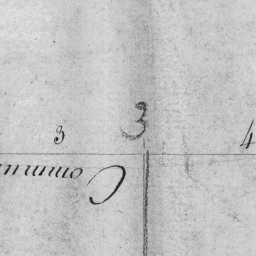 3
3 4
Commun